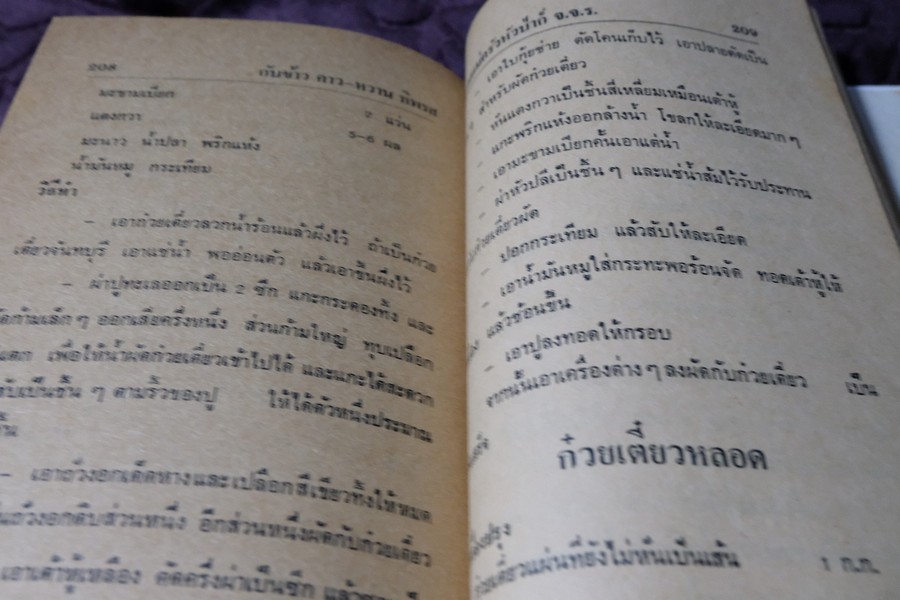 208 กับข้าว คาว-หวาน ทิพรส
มะขามเปียก
แตงกวา 2 แว่น
มะนาว น้ำปลา พริกแห้ง 5-6 ผล
น้ำมันหมู กระเทียม
วิธีทำ
– เอาก๋วยเตี๋ยวลวกน้ำร้อนแล้วผึ่งไว้ ถ้าเป็นก๋วย
เตี๋ยวจันทบุรี เอาแช่น้ำ พออ่อนตัว แล้วเอาขึ้นผึ่งไว้
– ผ่าปูทะเลออกเป็น 2 ซีก แกะกระดองทิ้ง และ
ก้ามเล็กๆ ออกเสียครึ่งหนึ่ง ส่วนก้ามใหญ่ ทุบเปลือก
แตก เพื่อให้น้ำผัดก๋วยเตี๋ยวเข้าไปได้ และแกะได้สะดวก
สับเป็นชิ้น ๆ ตามริ้วของปู ให้ได้ตัวหนึ่งประมาณ
– เอาถั่วงอกเด็ดหางและเปลือกสีเขียวทิ้งให้หมด
ถั่วงอกดิบส่วนหนึ่ง อีกส่วนหนึ่งผัดกับก๋วยเตี๋ยว
เอาเต้าหู้เหลือง ตัดครึ่งผ่าเป็นซีก
หัวป่าก์ จ.จ.ร. 209
– เอาใบกุ้ยช่าย ตัดโคนเก็บไว้ เอาปลายตัดเป็น
สำหรับผัดก๋วยเตี๋ยว
– หั่นแตงกวาเป็นชิ้นสี่เหลี่ยมเหมือนเต้าหู้
– แกะพริกแห้งออกล้างน้ำ โขลกให้ละเอียดมาก ๆ
– เอามะขามเปียกคั้นเอาแต่น้ำ
– ผ่าหัวปลีเป็นชิ้น ๆ และแช่น้ำส้มไว้รับประทาน
ก๋วยเตี๋ยวผัด
– ปอกกระเทียม แล้วสับให้ละเอียด
– เอาน้ำมันหมูใส่กระทะพอร้อนจัด ทอดเต้าหู้ให้
แล้วช้อนขึ้น
– เอาปูลงทอดให้กรอบ
จากนั้นเอาเครื่องต่าง ๆ ลงผัดกับก๋วยเตี๋ยว เป็น
ก๋วยเตี๋ยวหลอด
ก๋วยเตี๋ยวแผ่นที่ยังไม่หั่นเป็นเส้น 1 ก.ก.